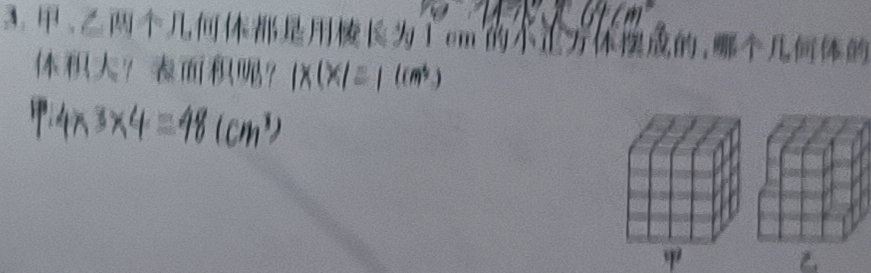 64cm³
3. 甲、乙两个几何体都是用棱长为1 cm的小正方体摆成的,哪个几何体的
体积大?表面积呢? 1×1×1=1(cm³)
甲:4×3×4=48(cm³)
甲 乙